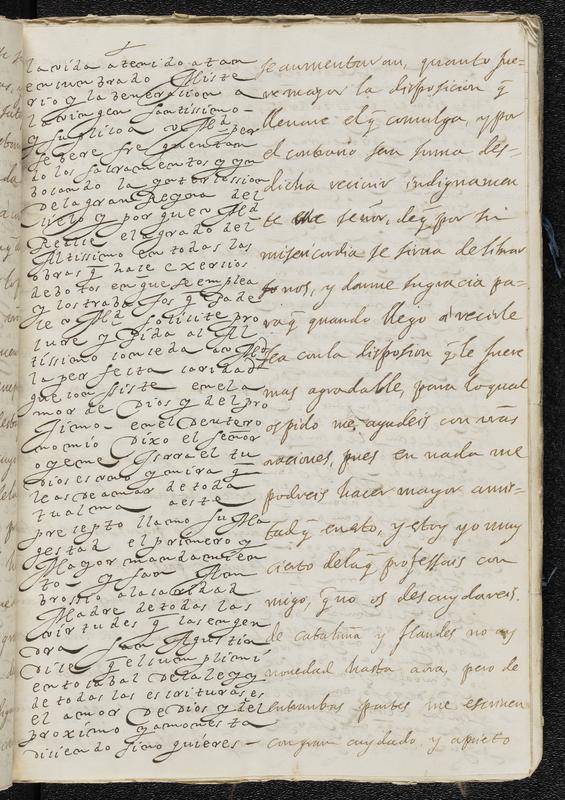 la vida a tenido a tan
encumbrado Miste
rio y la beneracion a
la virgen santissima
y suplico a v Md per
sebere frequentan
do los sacramentos y yn
bocando la yntercession
de la gran Reyna del
cielo y porque v Md
Recive el agrado del
Altissimo en todas las
obras q haze exercios
debotos en que se emplea
y los trabajos q pade
ce v Md solicite pro
cure y pida al Al
tissimo conceda a v Md
la perfecta caridad
que consiste en el a
mor de Dios y del pro
jimo en el Deutero
nomio Dixo el señor
oyeme Isrrael tu
Dios es uno y mira q
le as de amar de toda
tu alma a este
precepto llamo su Ma
gestad el primero y
Mayor mandamien
to y San Am
brossio a la caridad
Madre de todas las
virtudes q las engen
dra San Agustin
dice q el cumplimi
ento cabal de la ley y
de todas las escrituras es
el amor de Dios y del
proximo y amonesta
diciendo si no quieres
se aumentaran, quanto fue-
re mayor la disposicion q
llevare el q comulga, y por
el contrario sera suma des-
dicha recivir indignamen
te este señor, de q por su
misericordia se sirva de librar
nos, y darme su gracia pa-
ra q quando llego a recivirle
sea con la disposicion q le fuere
mas agradable, para lo qual
os pido me ayudeis con vras
oraciones, pues en nada me
podreis hacer mayor amis-
tad q en esto, y estoy yo muy
cierto de la q professais con
migo, q no os descuydareis.
de cataluña y flandes no ay
novedad hasta aora, pero de
entrambas partes me escriven
con gran cuydado, y aprieto